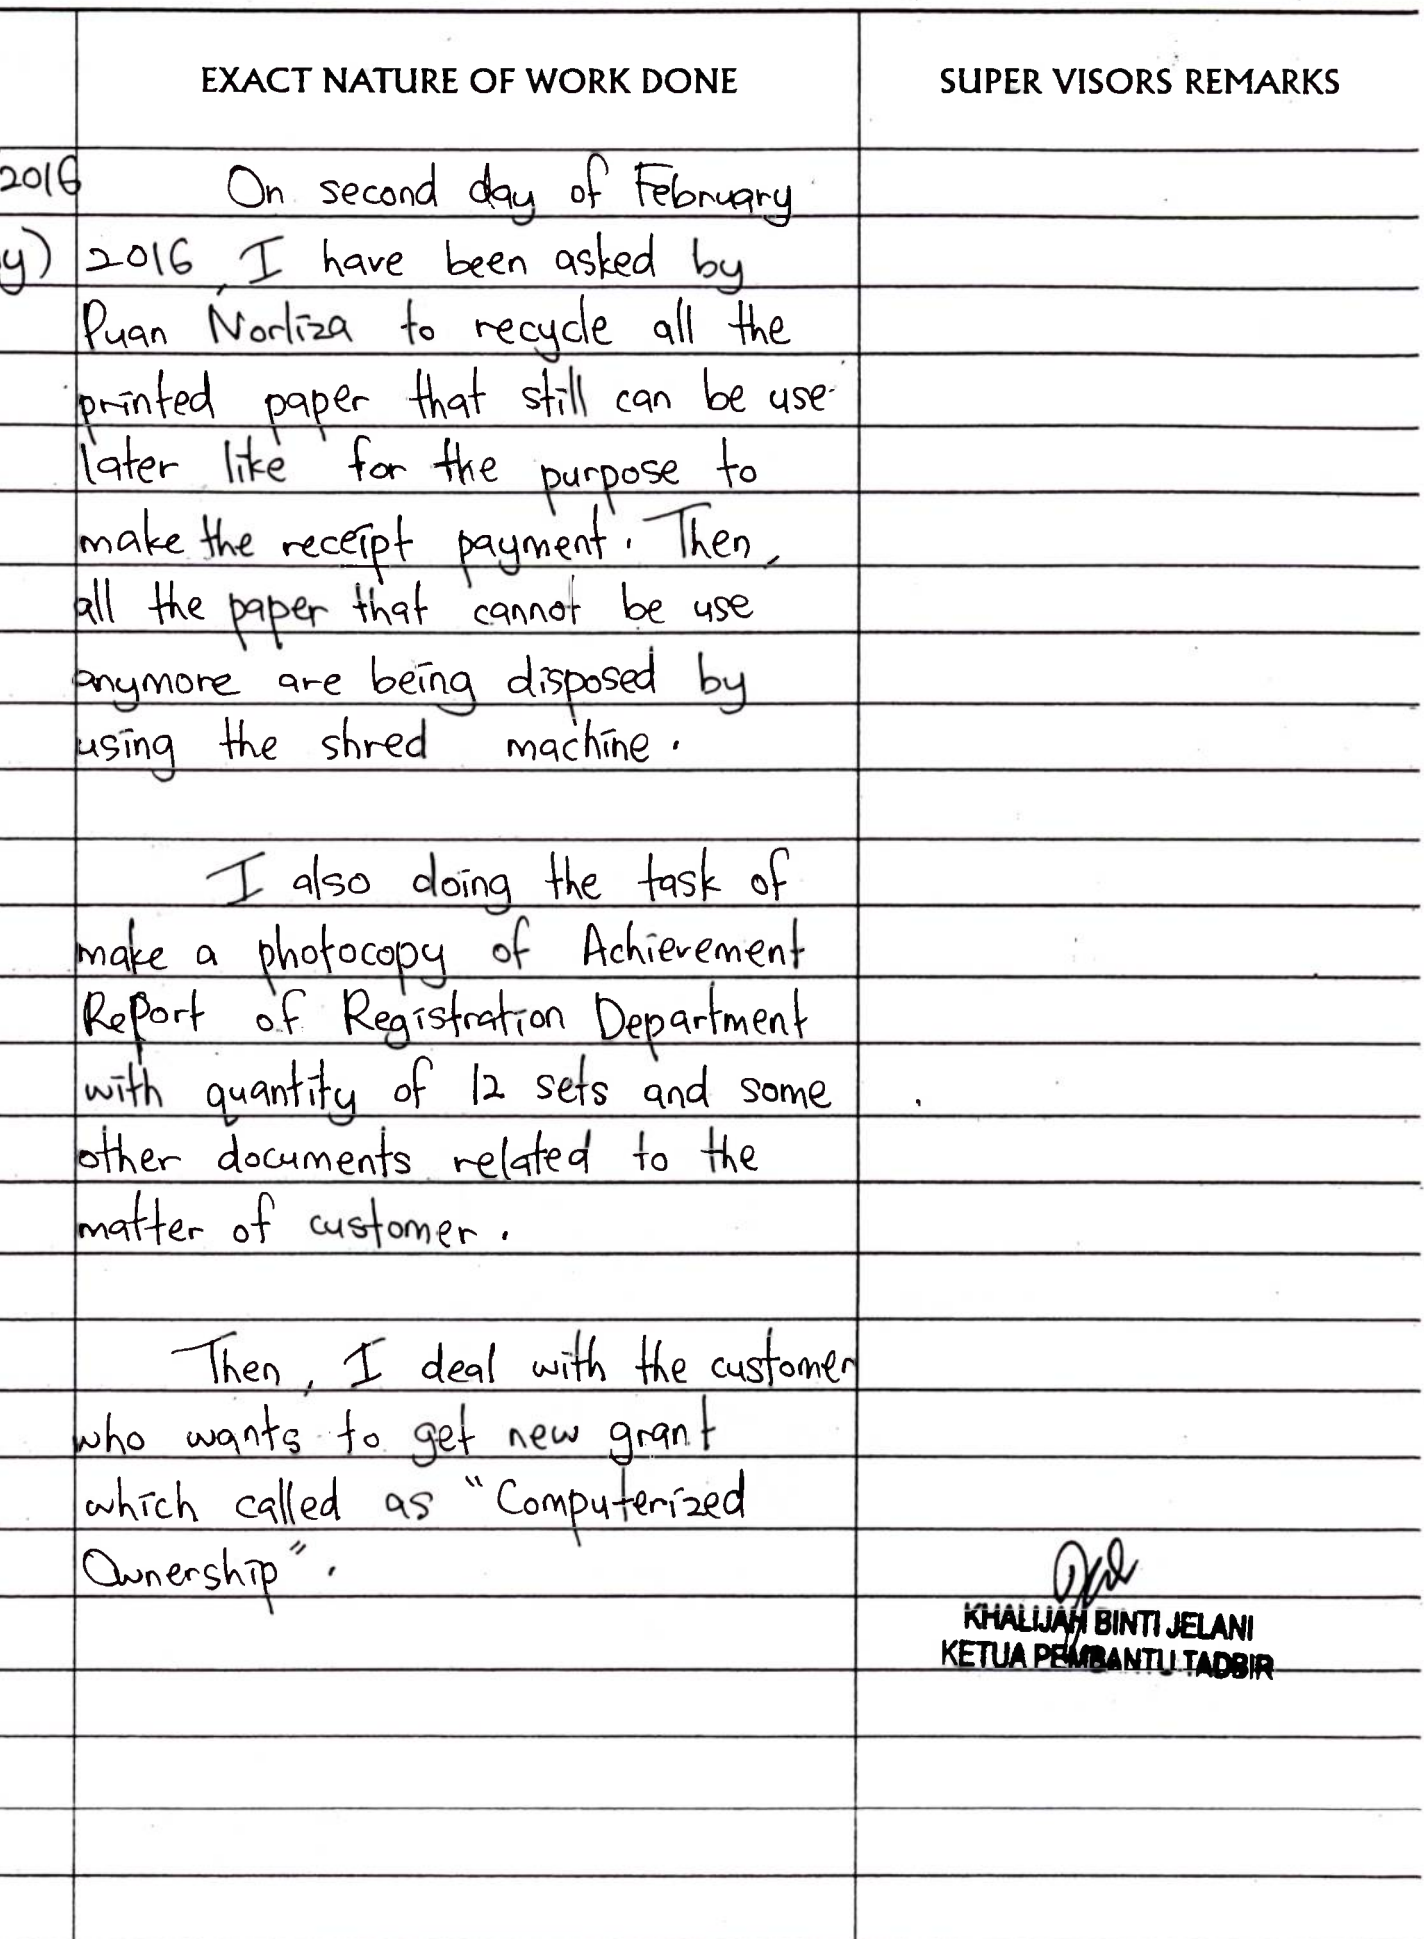 EXACT NATURE OF WORK DONE
SUPER VISORS REMARKS
2016 On second day of February
y) 2016, I have been asked by
Puan Norliza to recycle all the
printed paper that still can be use
later like for the purpose to
make the receipt payment. Then,
all the paper that cannot be use
anymore are being disposed by
using the shred machine.
I also doing the task of
make a photocopy of Achievement
Report of Registration Department
with quantity of 12 sets and some
other documents related to the
matter of customer.
Then, I deal with the customer
who wants to get new grant
which called as "Computerized
Ownership".
KHALIJAH BINTI JELANI
KETUA PEMBANTU TADBIR